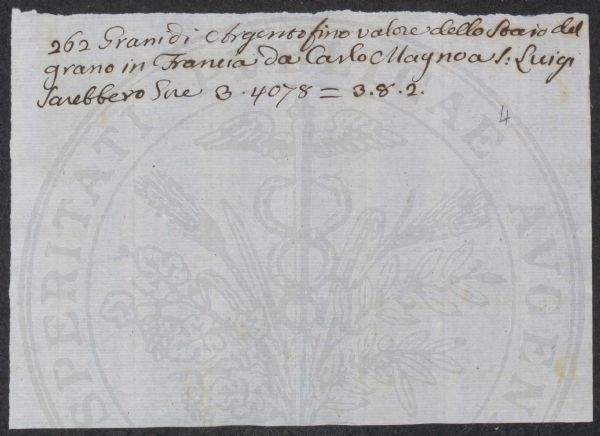 262 Grani di Argento fino valore dello Staio del
grano in Francia da Carlo Magno a S: Luigi
sarebbero Lire 3.4078 = 3.8.2.
4
PERITATI PUBLICAE AUGEN